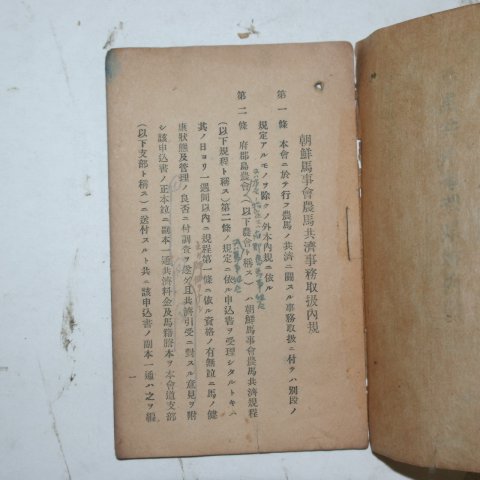 朝鮮馬事會農馬共濟事務取扱內規
第一條 本會ニ於テ行フ農馬ノ共濟ニ關スル事務取扱ニ付テハ別段ノ
規定アルモノヲ除クノ外本內規ニ依ル
第二條 府郡島農會(以下農會ト稱ス)ハ朝鮮馬事會農馬共濟規程
(以下規程ト稱ス)第二條ノ規定ニ依ル申込書ヲ受理シタルトキハ
其ノ日ヨリ一週間以內ニ規程第一條ニ依ル資格ノ有無竝ニ馬ノ健
康狀態及管理ノ良否ニ付調査ヲ遂ゲ且共濟引受ニ對スル意見ヲ附
シ該申込書ノ正本竝ニ副本一通共濟料金及馬籍謄本ヲ本會道支部
(以下支部ト稱ス)ニ送付スルト共ニ該申込書ノ副本一通ハ之ヲ編
一